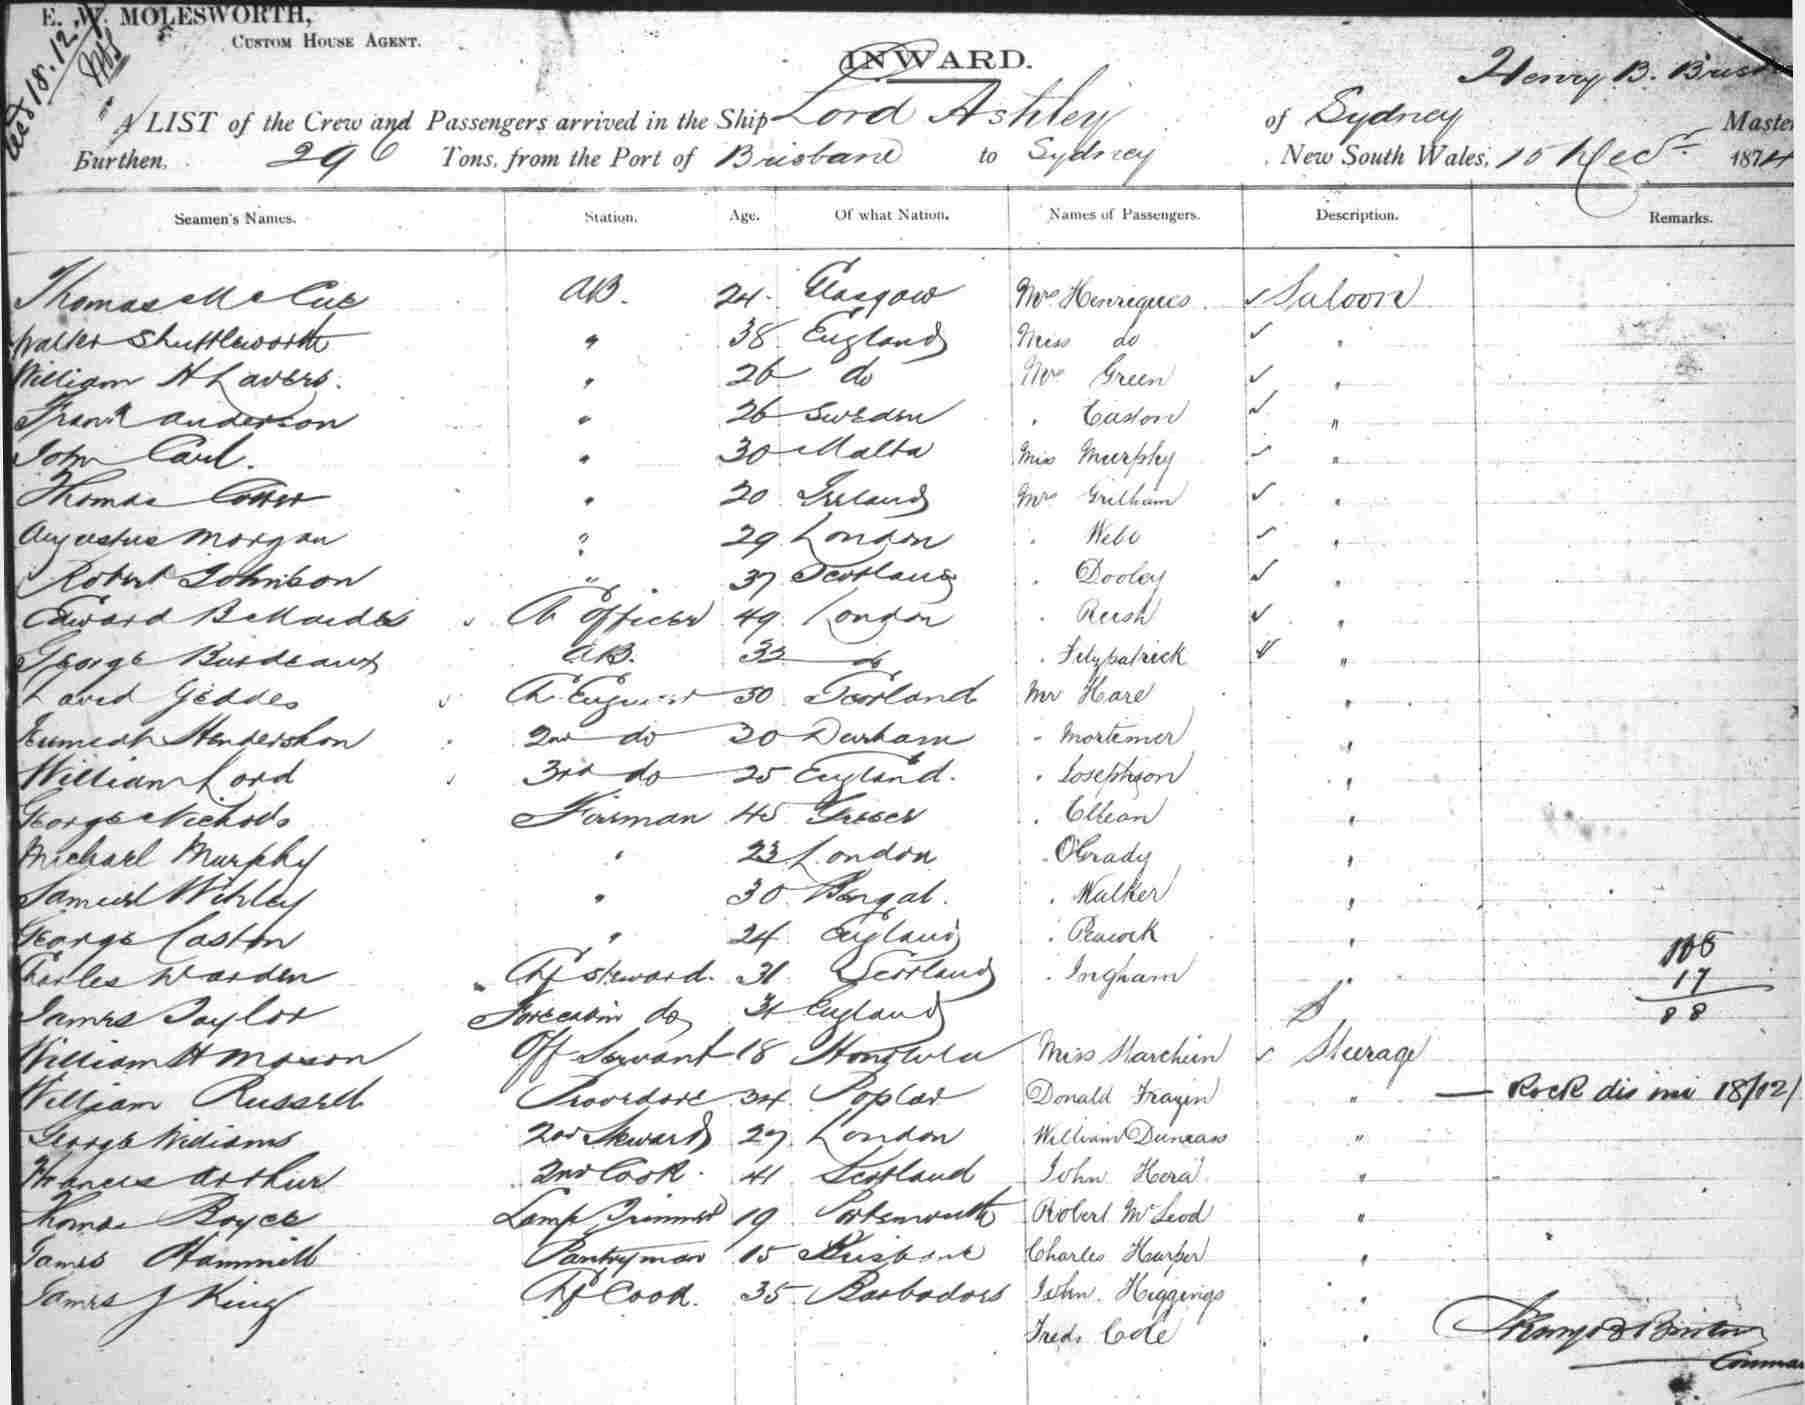 E. W. MOLESWORTH,
CUSTOM HOUSE AGENT.
18.12
INWARD.
Henry B.
A LIST of the Crew and Passengers arrived in the Ship Lord Ashley of Sydney Master
Burthen, 296 Tons, from the Port of Brisbane to Sydney New South Wales, 15 Decr 1874
Seamen's Names. Station. Age. Of what Nation. Names of Passengers. Description. Remarks.
Thomas McCue AB. 24 Glasgow Mrs Henriques Saloon
Walter Shuttleworth " 38 England Miss do "
William H Lavers. " 26 do Mrs Green "
Frank Anderson " 26 Sweden " Easton "
John Carl. " 30 Malta Miss Murphy "
Thomas Cotter " 20 Ireland Mrs Grilham "
Augustus Morgan " 29 London " Webb "
Robert Johnson " 37 Scotland " Dooley "
Edward Ch Officer 49 London " Rush "
George Burdeaux AB. 33 do " Fitzpatrick "
David Geddes Ch Engineer 30 Scotland Mr Hare "
Henderson 2nd do 30 Durham " Mortimer "
William Lord 3rd do 25 England. " Josephson "
George Nichols Fireman 45 Greece "
Michael Murphy " 23 London " OGrady "
Samuel " 30 Bengal. " Walker "
George Caston " 24 England " Peacock "
Charles Warden Chf Steward. 31 Scotland " Ingham "
105
17
88
James Taylor Forecabin do 31 England
William H Mason Off Servant 18 Honolulu Miss Steerage
William Russell Provedore 34 Poplar Donald " — 18/12/
George Williams 2nd Steward 27 London William "
Francis Arthur 2nd Cook. 41 Scotland John "
Thomas Boyce Lamp Trimmer 19 Portsmouth Robert McLeod "
James Hammill Pantryman 15 Brisbane Charles Harper "
James J King Chf Cook. 35 Barbadoes John Higgings "
Fredk Cole "